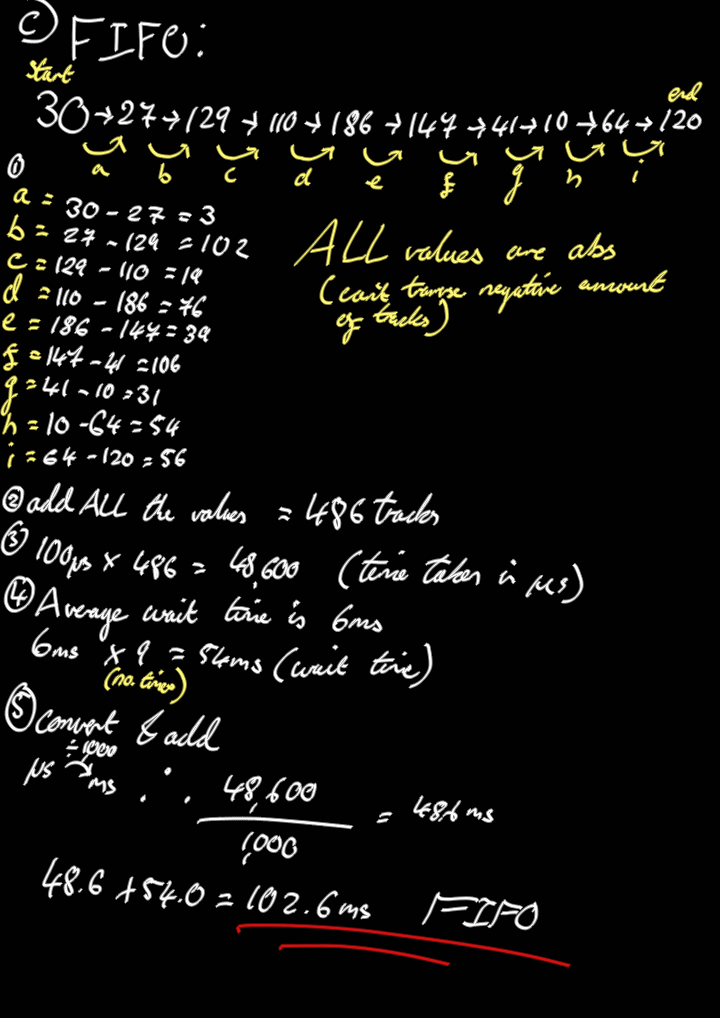 c) FIFO:
start
end
30 → 27 → 129 → 110 → 186 → 147 → 41 → 10 → 64 → 120
a b c d e f g h i
①
a = 30 - 27 = 3
b = 27 - 129 = 102
c = 129 - 110 = 19
d = 110 - 186 = 76
e = 186 - 147 = 39
f = 147 - 41 = 106
g = 41 - 10 = 31
h = 10 - 64 = 54
i = 64 - 120 = 56
ALL values are abs
(can't negative amount
of tracks)
② add ALL the values = 486 tracks
③ 100μs × 486 = 48,600 (time taken in μs)
④ Average wait time is 6ms
6ms × 9 = 54ms (wait time)
(no. times)
⑤ Convert & add
÷1000
μs → ms ∴ 48,600 / 1,000 = 48.6 ms
48.6 + 54.0 = 102.6 ms FIFO